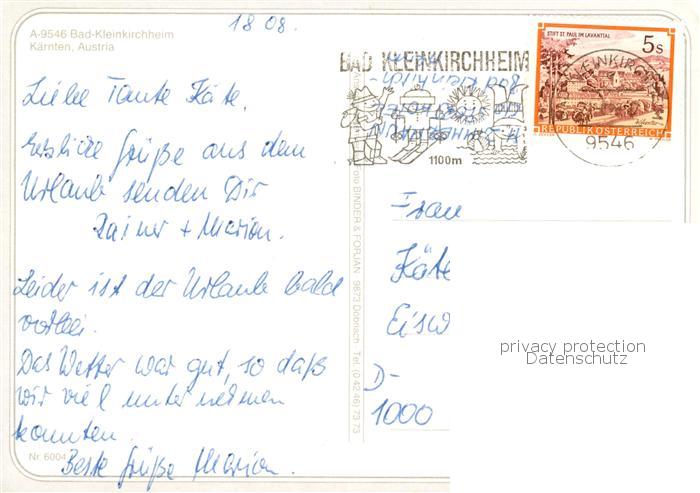 18 08.
A-9546 Bad-Kleinkirchheim
Kärnten, Austria
Liebe Tante Käte,
herzliche Grüße aus dem
Urlaub senden Dir
Rainer + Marion.
Leider ist der Urlaub bald
vorbei.
Das Wetter war gut, so daß
wir viel unternehmen
konnten.
Beste Grüße Marion.
Nr. 6004
Foto BINDER & FORJAN 9873 Döbriach Tel. (0 42 46) 73 73
BAD KLEINKIRCHHEIM
1100m
STIFT ST. PAUL IM LAVANTTAL
5s
REPUBLIK ÖSTERREICH
9546
Frau
Käte
Eisw
D-
1000
privacy protection
Datenschutz